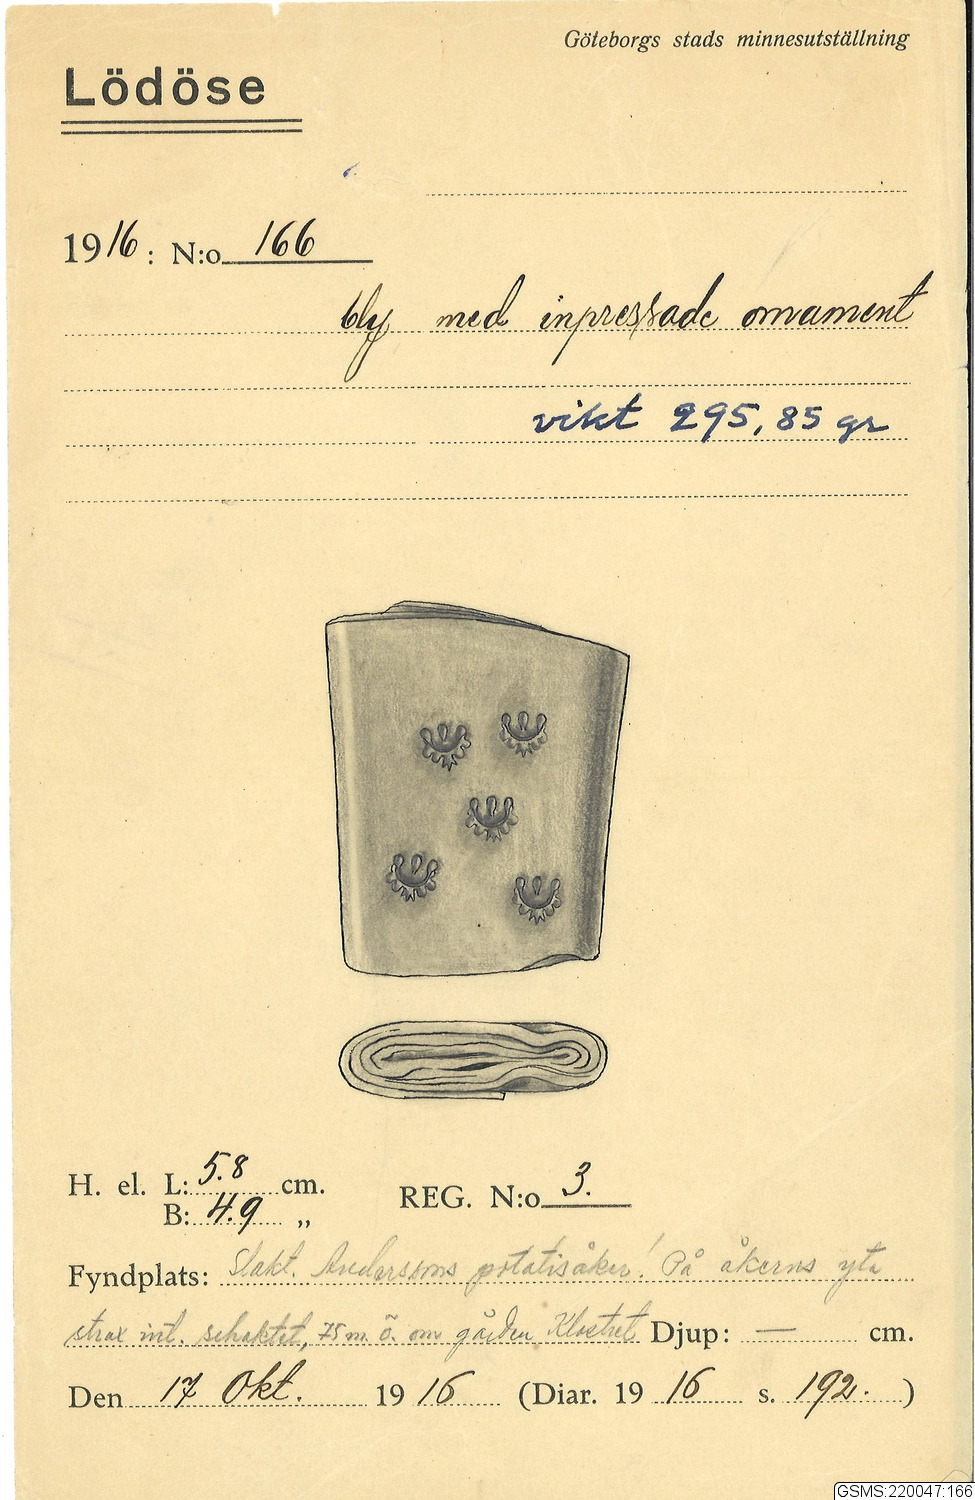 Göteborgs stads minnesutställning
Lödöse
1916: N:o 166
bly med inpressade ornament
vikt 295,85 gr
H. el. L: 5.8 cm.
B: 4.9 „
REG. N:o 3.
Fyndplats: Slakt. Anderssons potatisåker! På åkerns yta
strax int. schaktet, 75 m. ö. om gården Klostret Djup: — cm.
Den 17 Okt. 1916 (Diar. 1916 s. 192. )
GSMS:220047:166